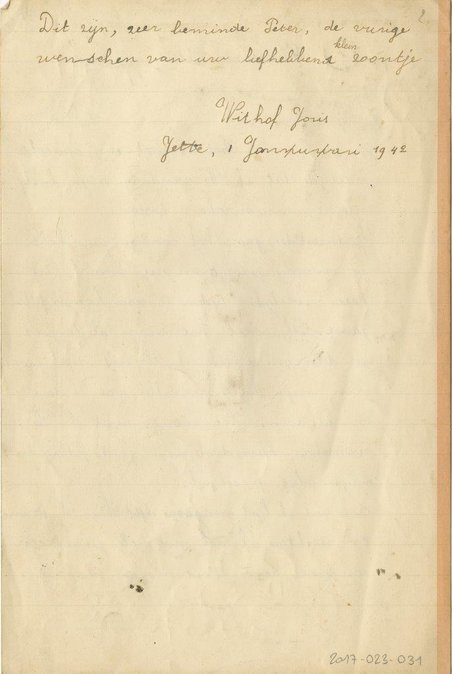 2
Dit zijn, zeer beminde Peter, de vurige
klein
wenschen van uw liefhebbend zoontje
Withof Joris
Jette, 1 Januari 1942
2017-023-031